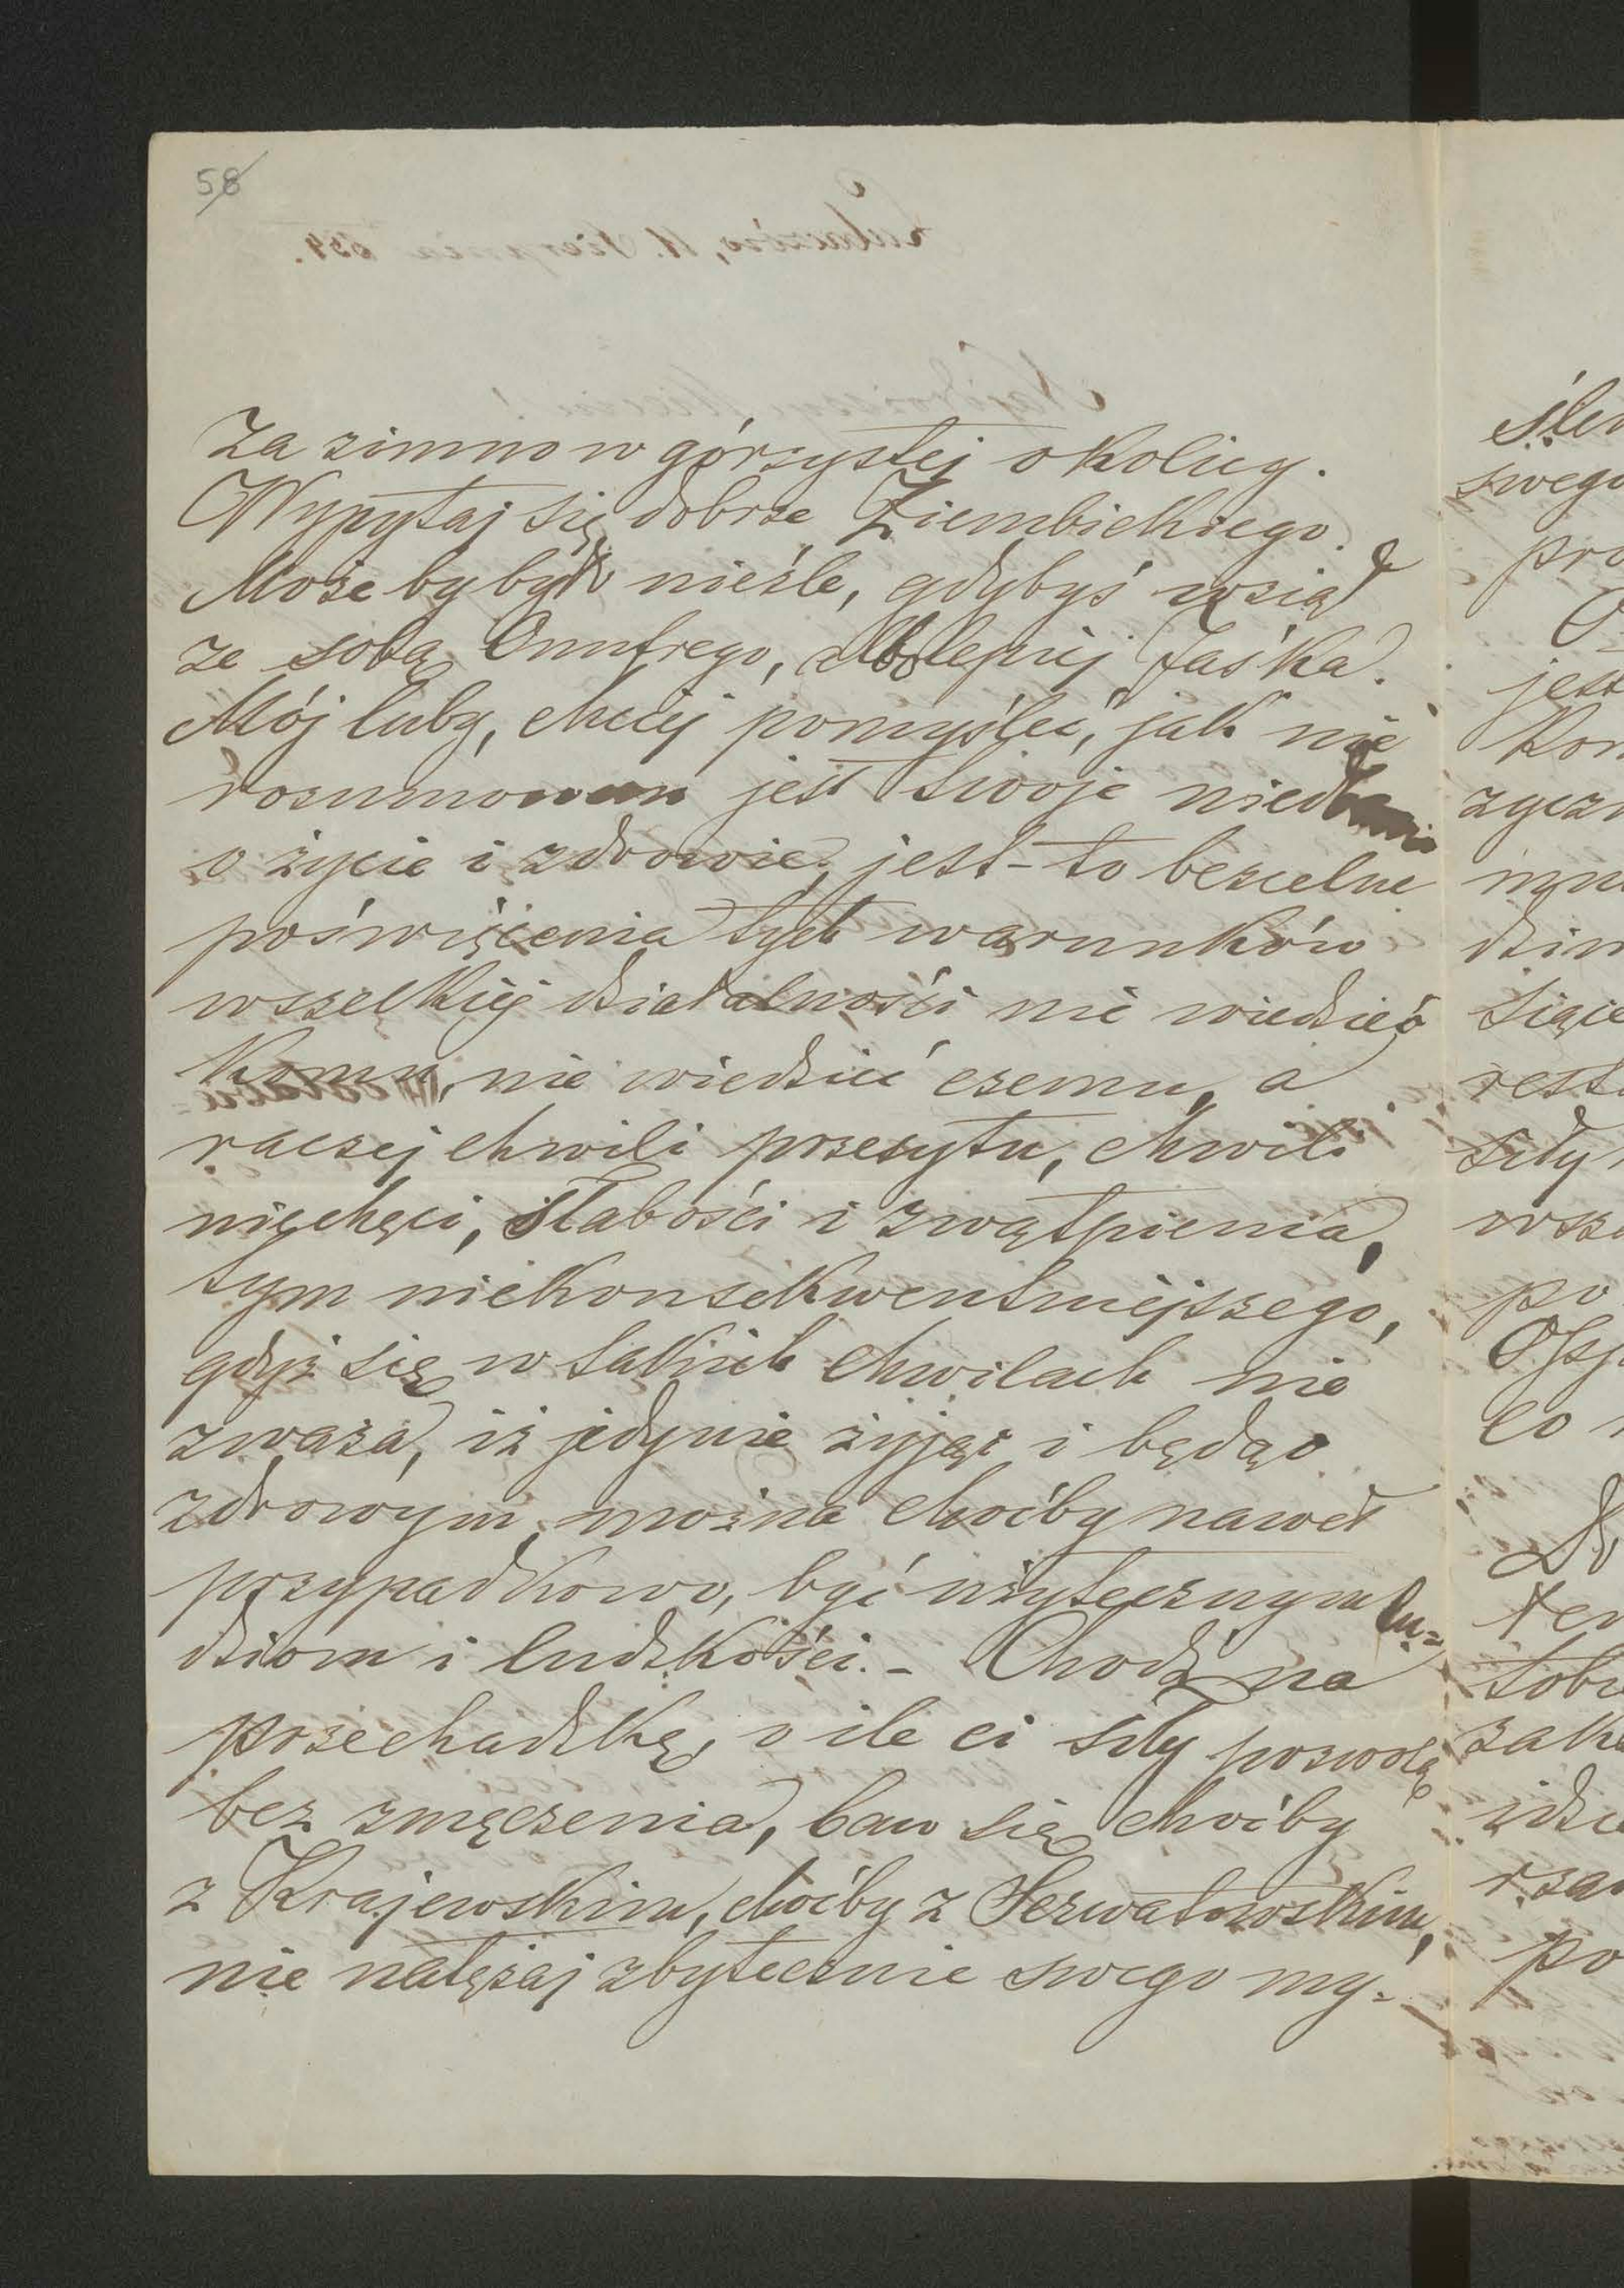 58
za zimno w górzystej okolicy.
Wypytaj się dobrze Ziembickiego.
Może by było nieźle, gdybyś wziął
ze sobą Onufrego, albo lepiej Jaśka.
Mój luby, chciej pomyśleć, jak nie
rozumowem jest twoje niedbanie
o życie i zdrowie, jest-to bezcelne
poświęcenia tych warunków
wszelkiej działalności nie wiedzieć
komu, nie wiedzieć czemu, a
raczej chwili przesytu, chwili
niechęci, słabości i zwątpienia,
tym niekonsekwentniejszego,
gdyż się w takich chwilach nie
zważa, iż jedynie żyjąc i będąc
zdrowym, można choćby nawet
przypadkowo, być użytecznym lu=
dziom i ludzkości. - Chodź na
przechadzkę, o ile ci siły pozwolą
bez zmęczenia, baw się choćby
z Krajewskim, choćby z Serwatowskim,
nie natężaj zbytecznie swego my=